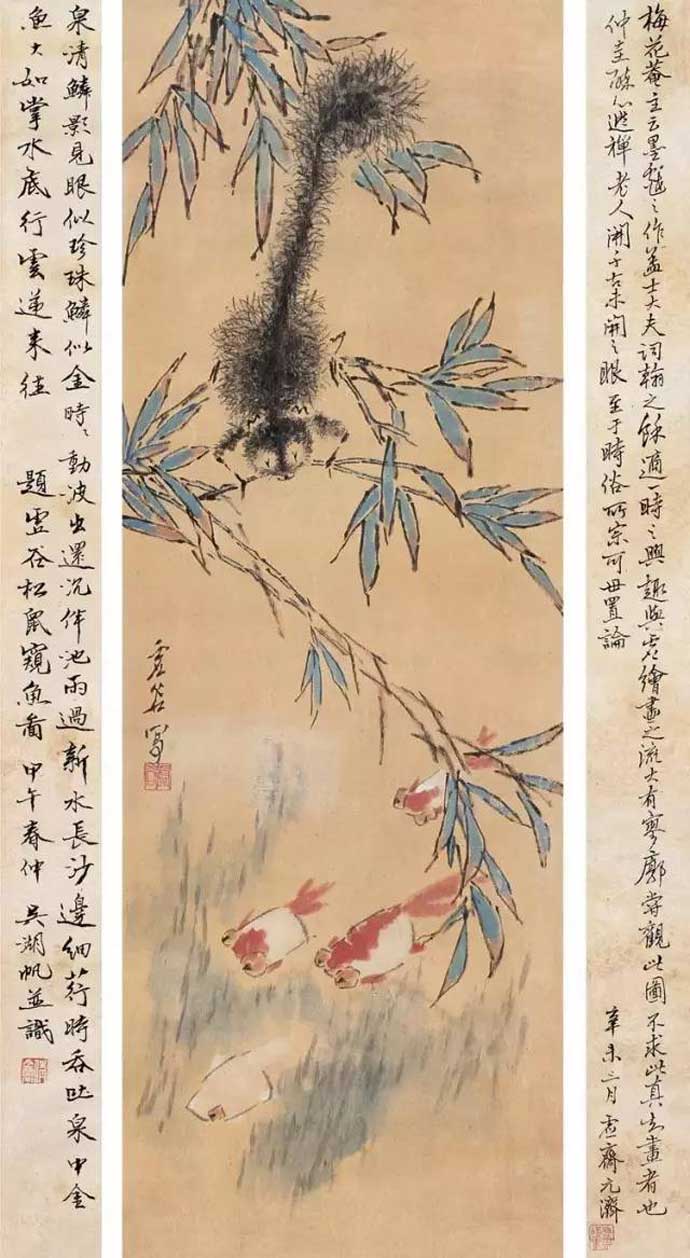 梅花菴主云墨戲之作蓋士大夫詞翰之餘適一時之興趣與夫繪畫之流大有寥廓嘗觀此圖不求此真畫者也
仲圭心逃禪老人開千古未開之眼至于時俗所宗可毋置論
辛未二月虛齋元濟
虛谷寫
泉清鱗影見眼似珍珠鱗似金時〻動波出還沉伴池雨過新水長沙邊細荇時吞吐泉中金
魚大如掌水底行雲遞來往 題虛谷松鼠窺魚圖 甲午春仲 吳湖帆並識